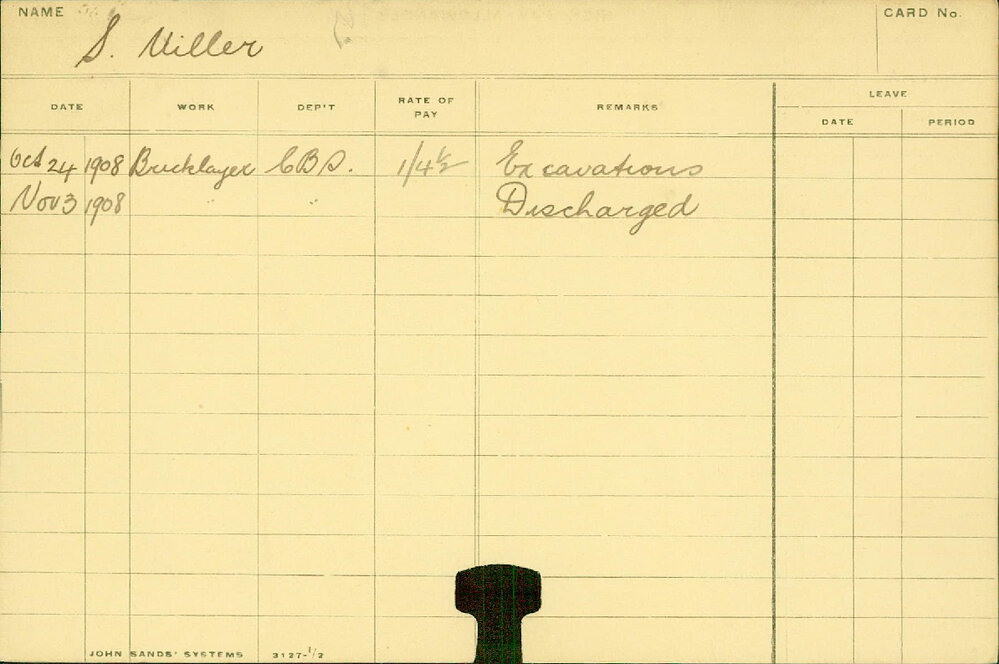 NAME S. Miller CARD No.
DATE WORK DEP'T RATE OF PAY REMARKS LEAVE
DATE PERIOD
Oct 24 1908 Bricklayer C.B.S. 1/4½ Excavations
Nov 3 1908 " " Discharged
JOHN SANDS' SYSTEMS 3127-1/2